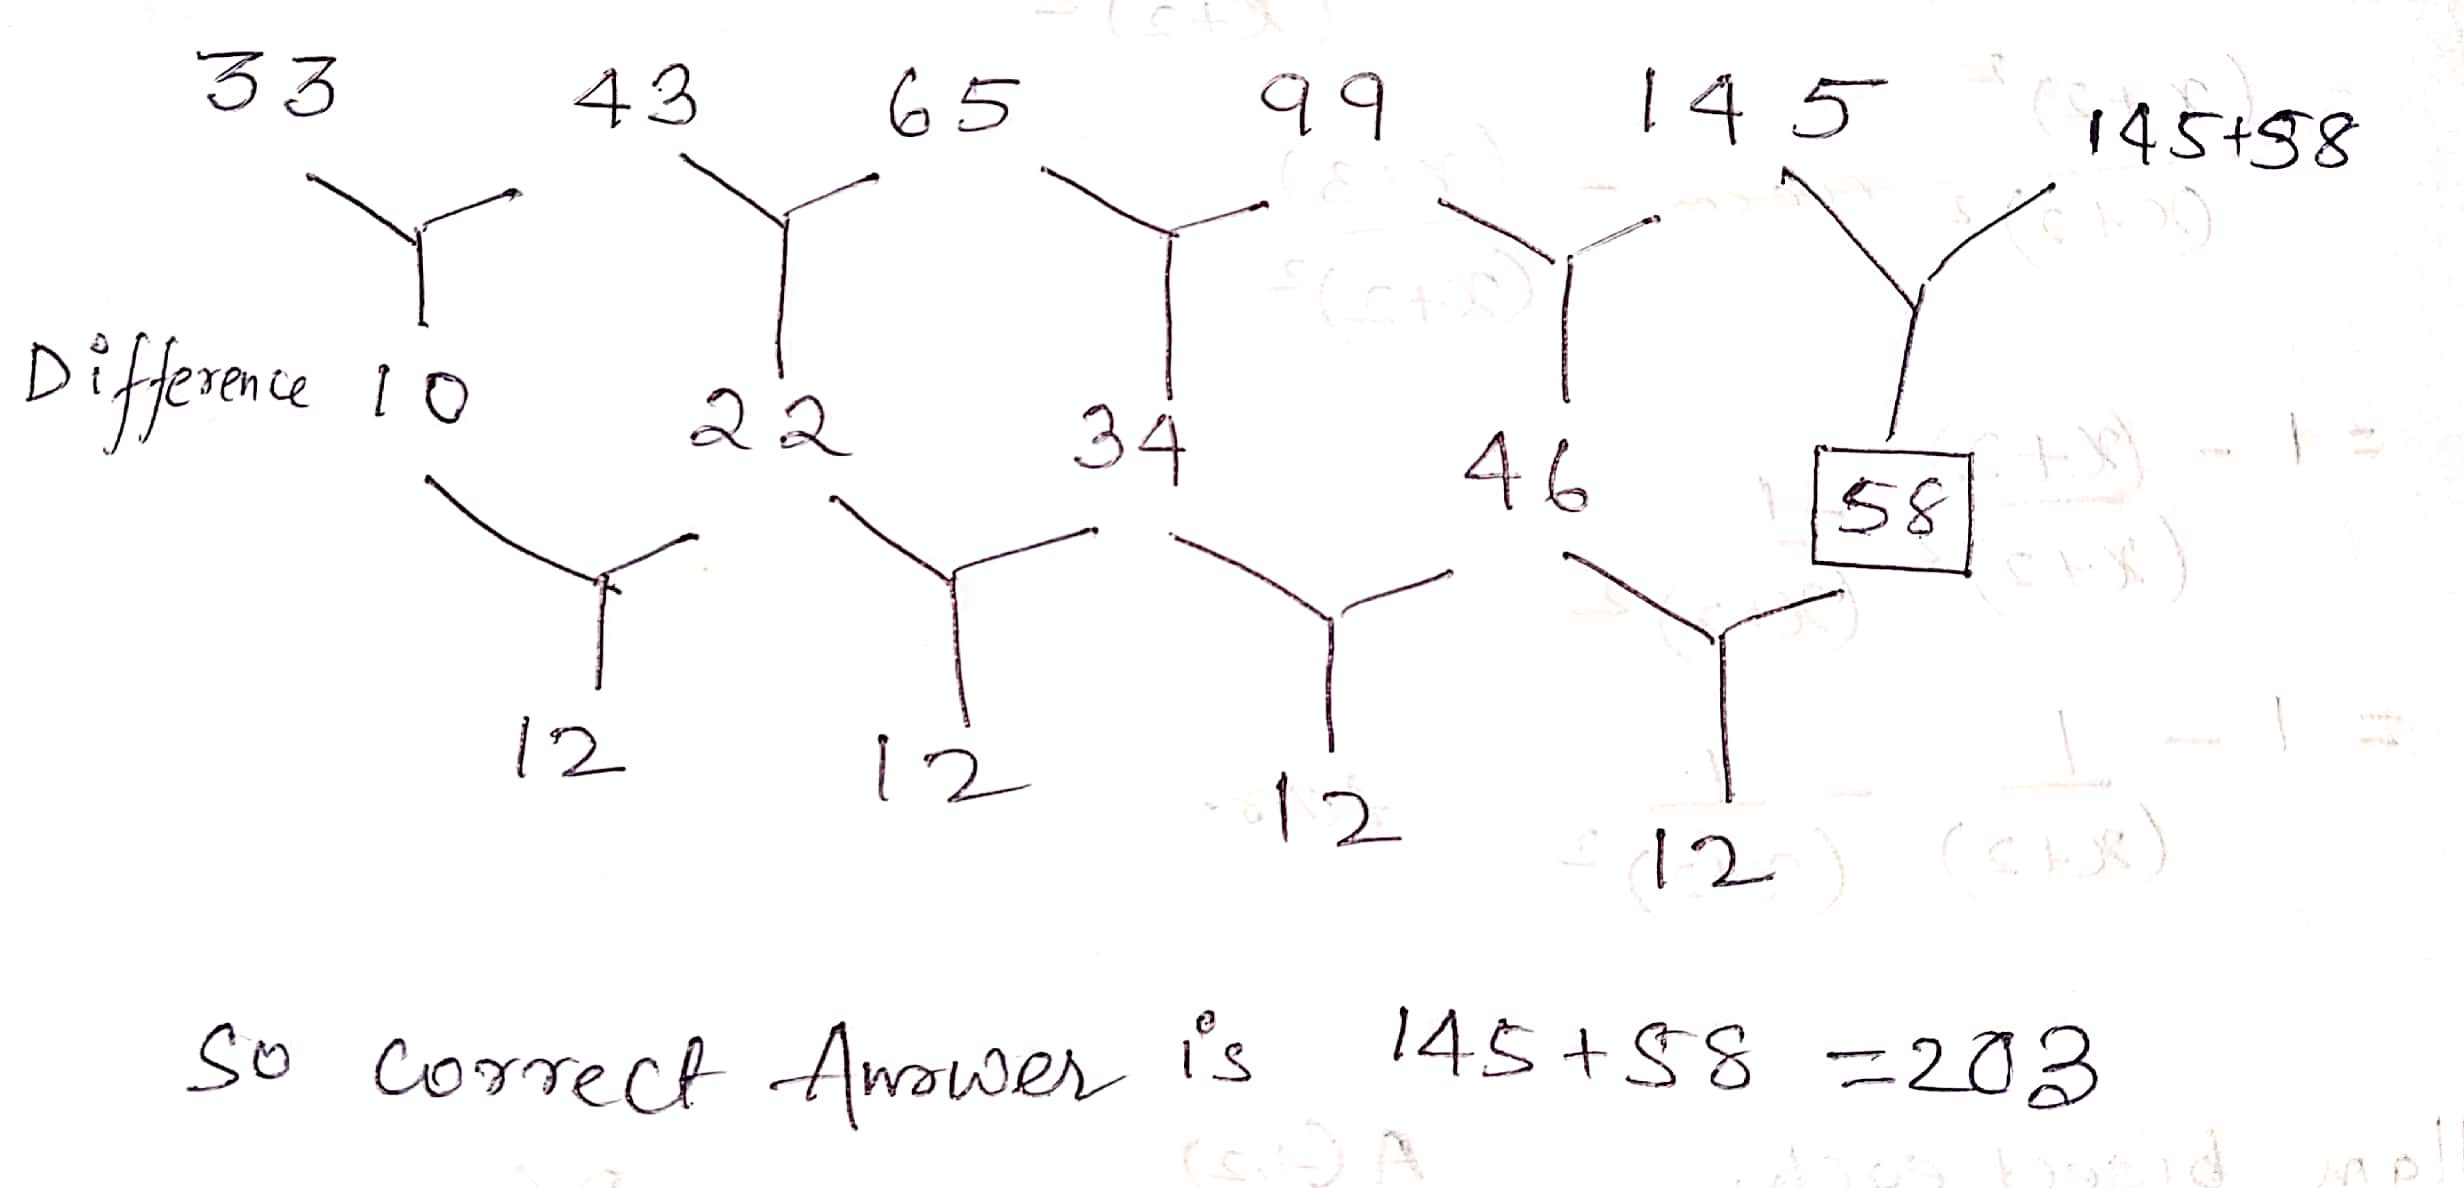 33 43 65 99 145 145+58
Difference 10 22 34 46 58
12 12 12 12
So correct Answer is 145+58 =203